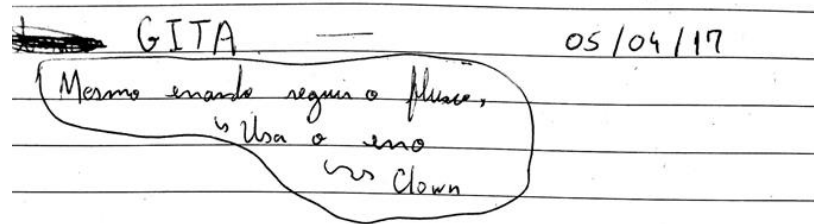 GITA — 05/04/17
Mesmo errando seguir o fluxo,
↳ Usa o erro
↳ Clown